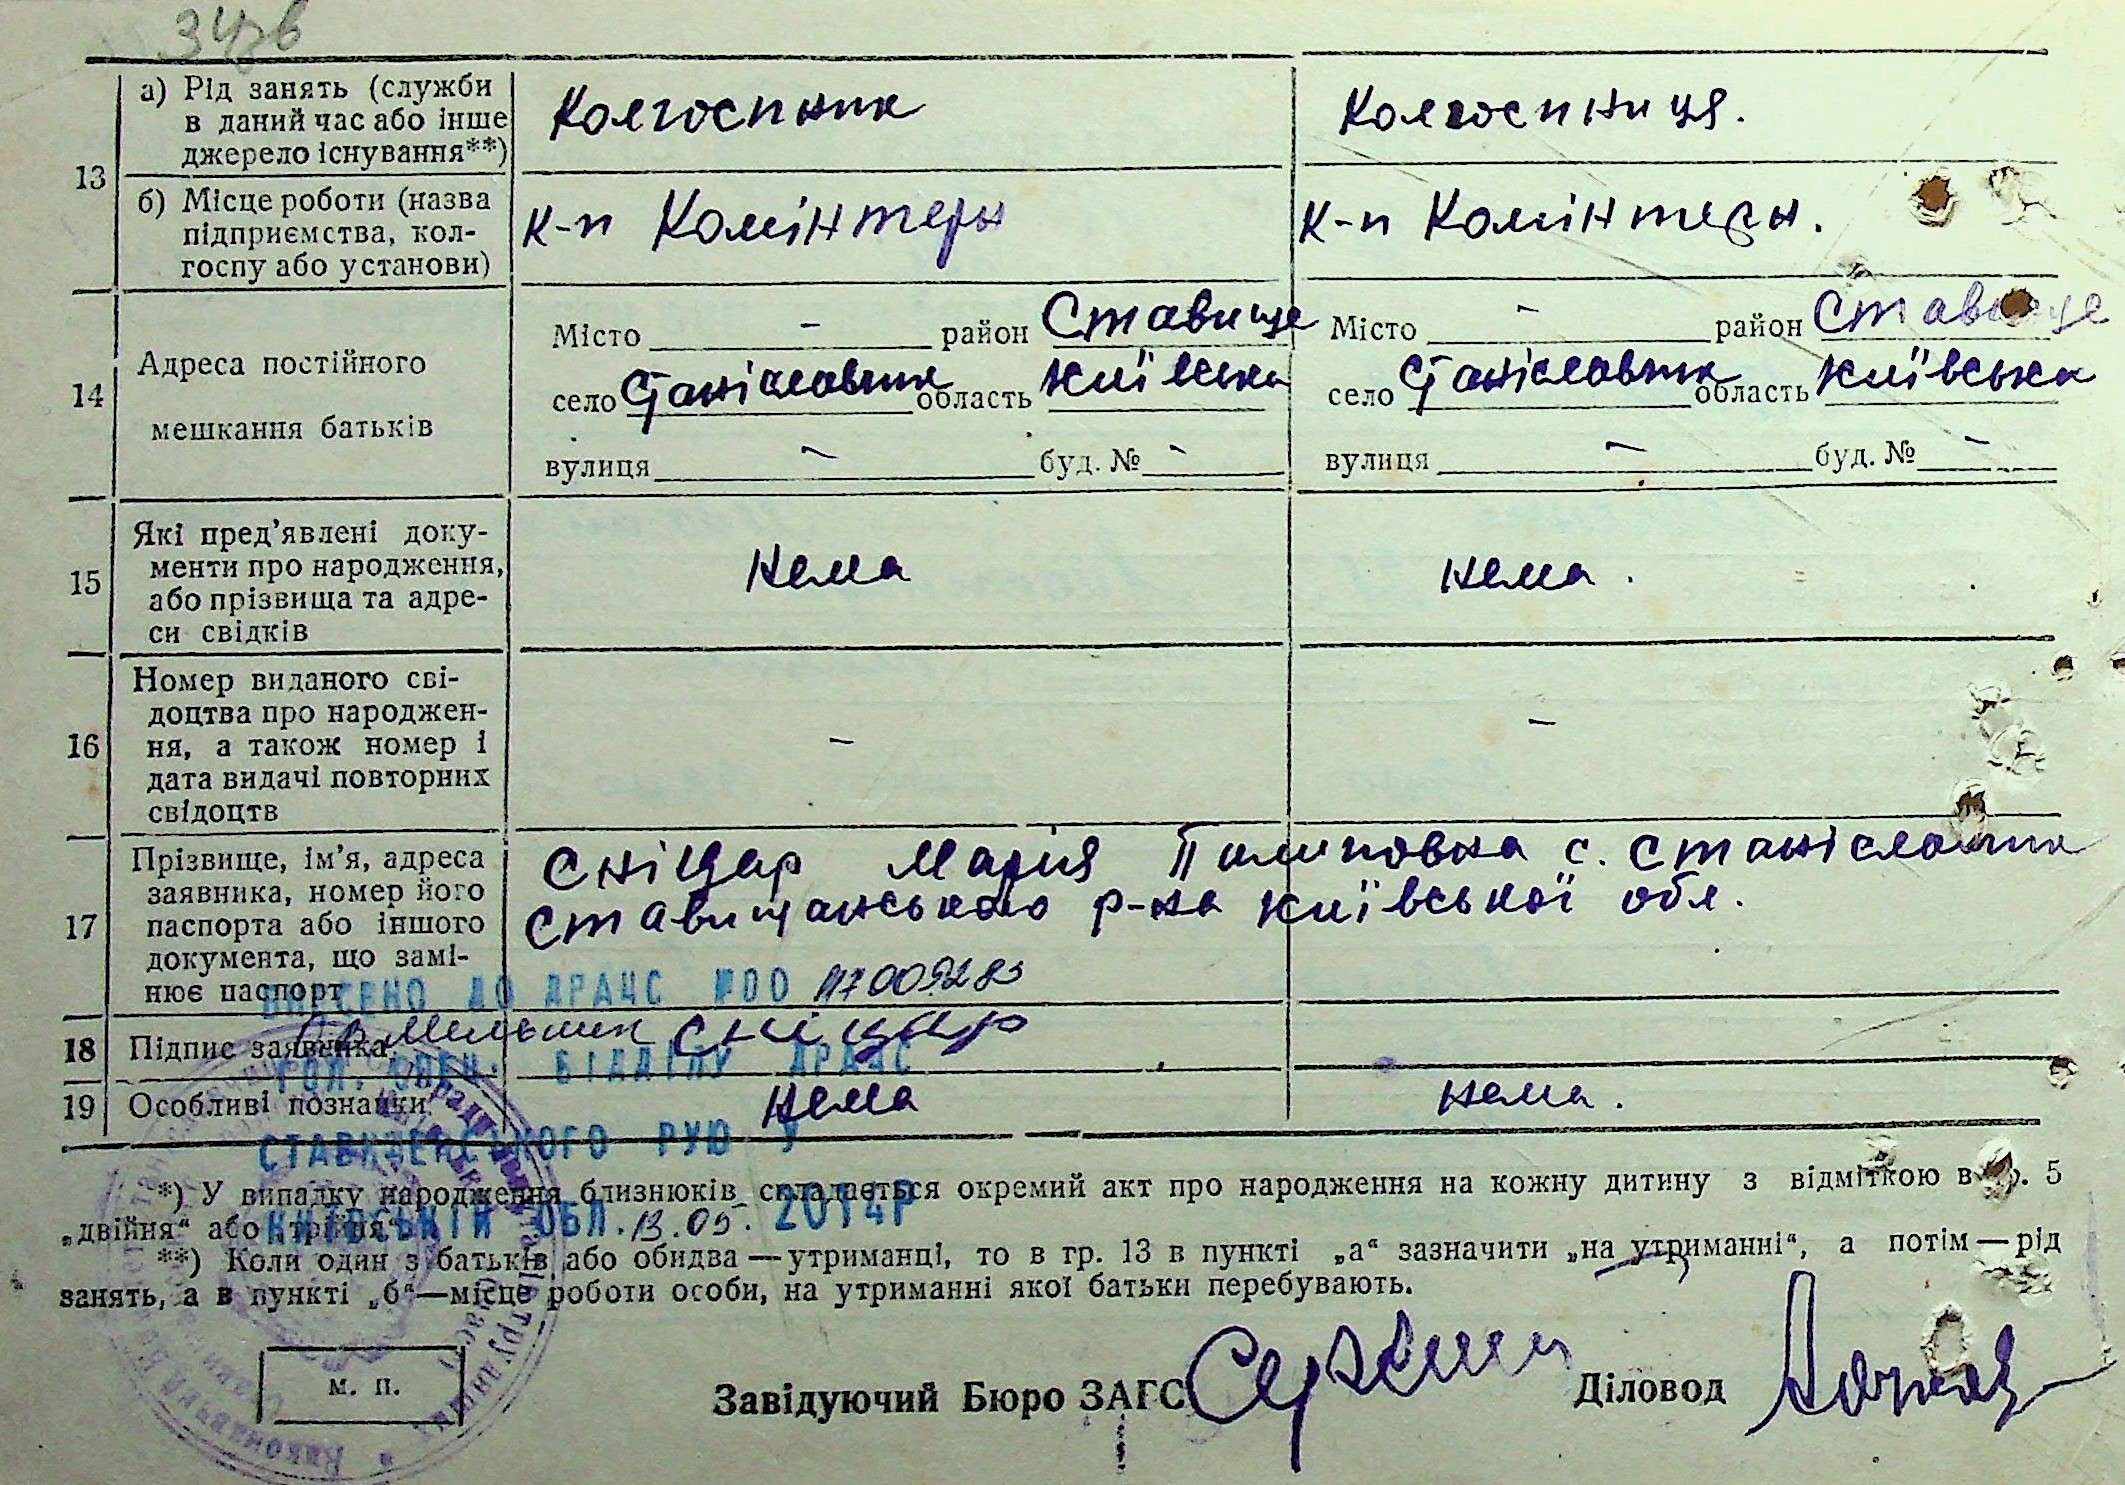 34зв
13
а) Рід занять (служби в даний час або інше джерело існування**)
Колгоспник
Колгоспниця.
б) Місце роботи (назва підприємства, колгоспу або установи)
к-п Комінтерн
к-п Комінтерн.
14
Адреса постійного мешкання батьків
Місто – район Ставище
село Станіславчик область Київська
вулиця – буд. № –
Місто – район Ставище
село Станіславчик область Київська
вулиця – буд. № –
15
Які пред'явлені документи про народження, або прізвища та адреси свідків
нема
нема.
16
Номер виданого свідоцтва про народження, а також номер і дата видачі повторних свідоцтв
–
–
17
Прізвище, ім'я, адреса заявника, номер його паспорта або іншого документа, що замінює паспорт
Сніцар Марія Пилиповна с. Станіславчик
Ставищанського р-на Київської обл.
ВНЕСЕНО ДО ДРАЦС №00
18
Підпис заявника
Мельник Сніцар
ГОЛ. СПЕЦ. ВІДДІЛУ ДРАЦС
19
Особливі познаики
нема
нема.
СТАВИЩЕНСЬКОГО РУЮ У
КИЇВСЬКІЙ ОБЛ. 13.05. 2014Р
*) У випадку народження близнюків складається окремий акт про народження на кожну дитину з відміткою в гр. 5
„двійня“ або „трійня“.
**) Коли один з батьків або обидва — утриманці, то в гр. 13 в пункті „а“ зазначити „на утриманні“, а потім — рід
занять, а в пункті „б“—місце роботи особи, на утриманні якої батьки перебувають.
м. п.
Завідуючий Бюро ЗАГС
Діловод